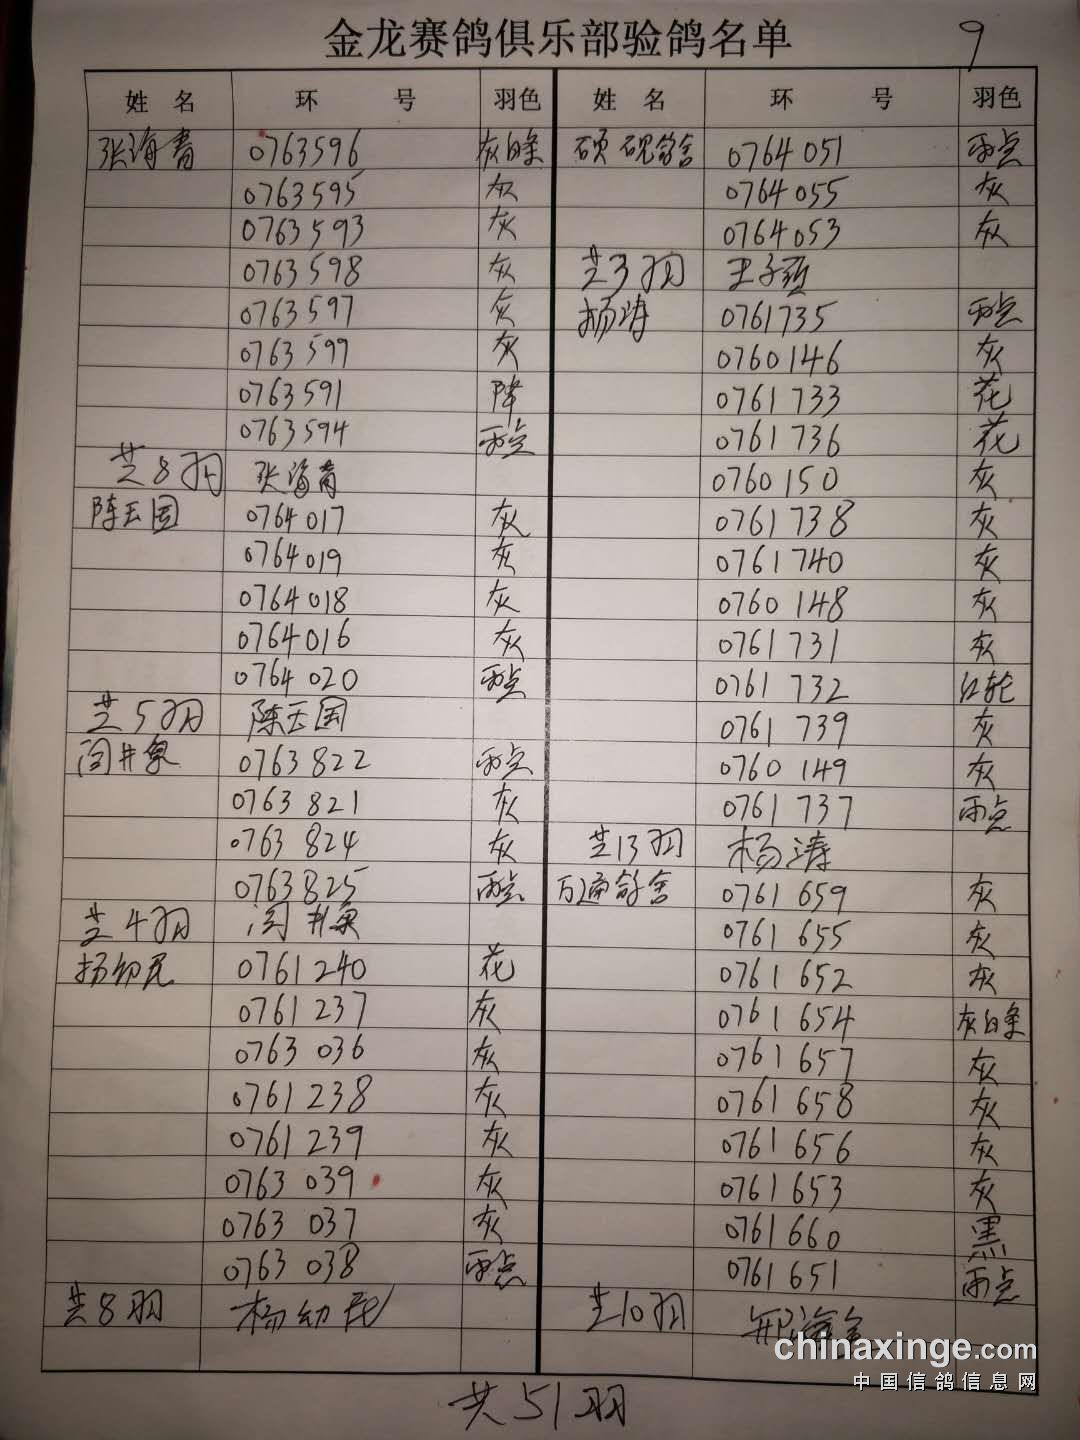 金龙赛鸽俱乐部验鸽名单
9
姓 名 环 号 羽色
张海青 0763596 灰白条
0763595 灰
0763593 灰
0763598 灰
0763597 灰
0763599 灰
0763591 降
0763594 雨点
共8羽 张海青
陈玉国 0764017 灰
0764019 灰
0764018 灰
0764016 灰
0764020 雨点
共5羽 陈玉国
闫井象 0763822 雨点
0763821 灰
0763824 灰
0763825 雨点
共4羽 闫井象
杨幼民 0761240 花
0761237 灰
0763036 灰
0761238 灰
0761239 灰
0763039 灰
0763037 灰
0763038 雨点
共8羽 杨幼民
姓 名 环 号 羽色
硕砚鸽舍 0764051 雨点
0764055 灰
0764053 灰
共3羽 王子
杨涛 0761735 雨点
0760146 灰
0761733 花
0761736 花
0760150 灰
0761738 灰
0761740 灰
0760148 灰
0761731 灰
0761732 红轮
0761739 灰
0760149 灰
0761737 雨点
共13羽 杨涛
万通鸽舍 0761659 灰
0761655 灰
0761652 灰
0761654 灰白条
0761657 灰
0761658 灰
0761656 灰
0761653 灰
0761660 黑
0761651 雨点
共10羽 郑海金
共51羽
chinaxinge.com
中国信鸽信息网